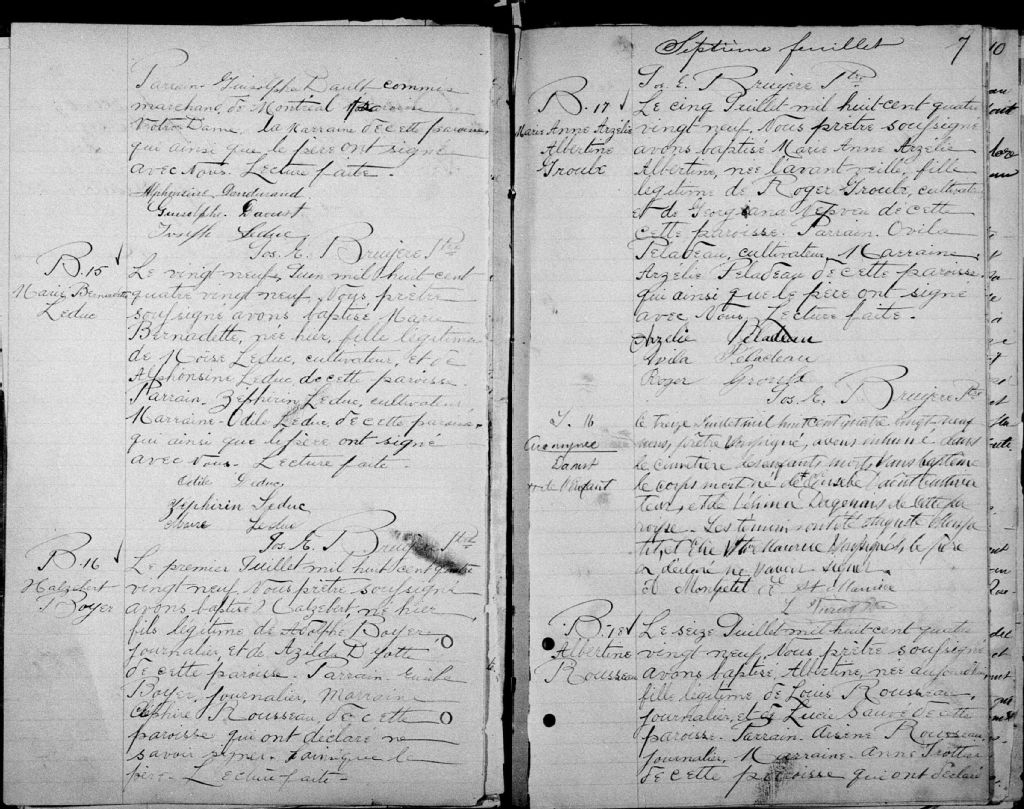 Parrain Guisolphe Dault commis
marchand, de Montreal paroisse
Notre Dame, la Marraine de cette paroisse,
qui ainsi que le père ont signé
avec Nous. Lecture faite.
Alphonsine Dandurand
Guisolphe Daoust
Joseph Leduc
Jos. E. Bruyère Ptre
B. 15
Marie Bernadette
Leduc
Le vingt neuf, Juin mil huit cent
quatre vingt neuf, Nous prêtre
soussigné avons baptisé Marie
Bernadette, née hier, fille légitime
de Moïse Leduc, cultivateur, et de
Alphonsine Leduc, de cette paroisse.
Parrain, Zephirin Leduc, cultivateur,
Marraine Odile Leduc, de cette paroisse,
qui ainsi que le père ont signé
avec Nous. Lecture faite.
Odile Leduc,
Zéphirin Leduc
Leduc
Jos. E. Bruyère Ptre
B. 16
Boyer
Le premier Juillet mil huit cent quatre
vingt neuf Nous prêtre soussigné
avons baptisé né hier
fils légitime de Adolphe Boyer,
journalier, et de Azilda
de cette paroisse. Parrain
Boyer, journalier, Marraine
Rousseau, de cette
paroisse qui ont déclaré ne
savoir signer ainsi que le
père. Lecture faite.
Septième feuillet 7
Jos. E. Bruyère Ptre
B. 17
Marie Anne Arzélie
Albertine
Groulx
Le cinq Juillet mil huit cent quatre
vingt neuf, Nous prêtre soussigné
avons baptisé Marie Anne Arzelie
Albertine, née l'avant veille, fille
légitime de Roger Groulx, cultivateur
et de Georgiana Neveu de cette
cette paroisse. Parrain Ovila
Peladeau, cultivateur, Marraine
Arzélie Peladeau de cette paroisse.
qui ainsi que le père ont signé
avec Nous, Lecture faite.
Arzélie Peladeau
Ovila Peladeau
Roger Groulx
Jos. E. Bruyère Ptre
S. 16
Anonyme
Daoust
le treize Juillet mil huit cent quatre vingt neuf
nous, prêtre soussigné, avons inhumé dans
le cimetière des enfants morts sans baptême
le corps mort né de Eusèbe Daoust cultiva
teur, et de Dagenais de cette pa
roisse. Les témoins ont été Auguste
et Elie soussignés, le père
a déclaré ne savoir signer
B. 18
Albertine
Rousseau
Le seize Juillet mil huit cent quatre
vingt neuf Nous prêtre soussigné
avons baptisé, Albertine, née aujourd'hui
fille légitime de Louis Rousseau,
journalier, et de Lucie Sauvé de cette
paroisse. Parrain Arsène Rousseau
journalier, Marraine Anne Trottier
de cette paroisse qui ont déclaré
10